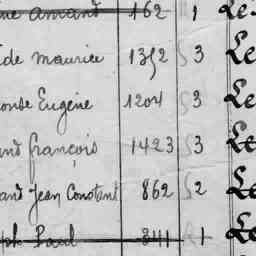 Amand 162 1 Le
de Maurice 1352 3 Le
onse Eugène 1204 3 Le
and françois 1423 3 Le
and Jean Constant 862 2 Le
ph Paul 841 1 Le